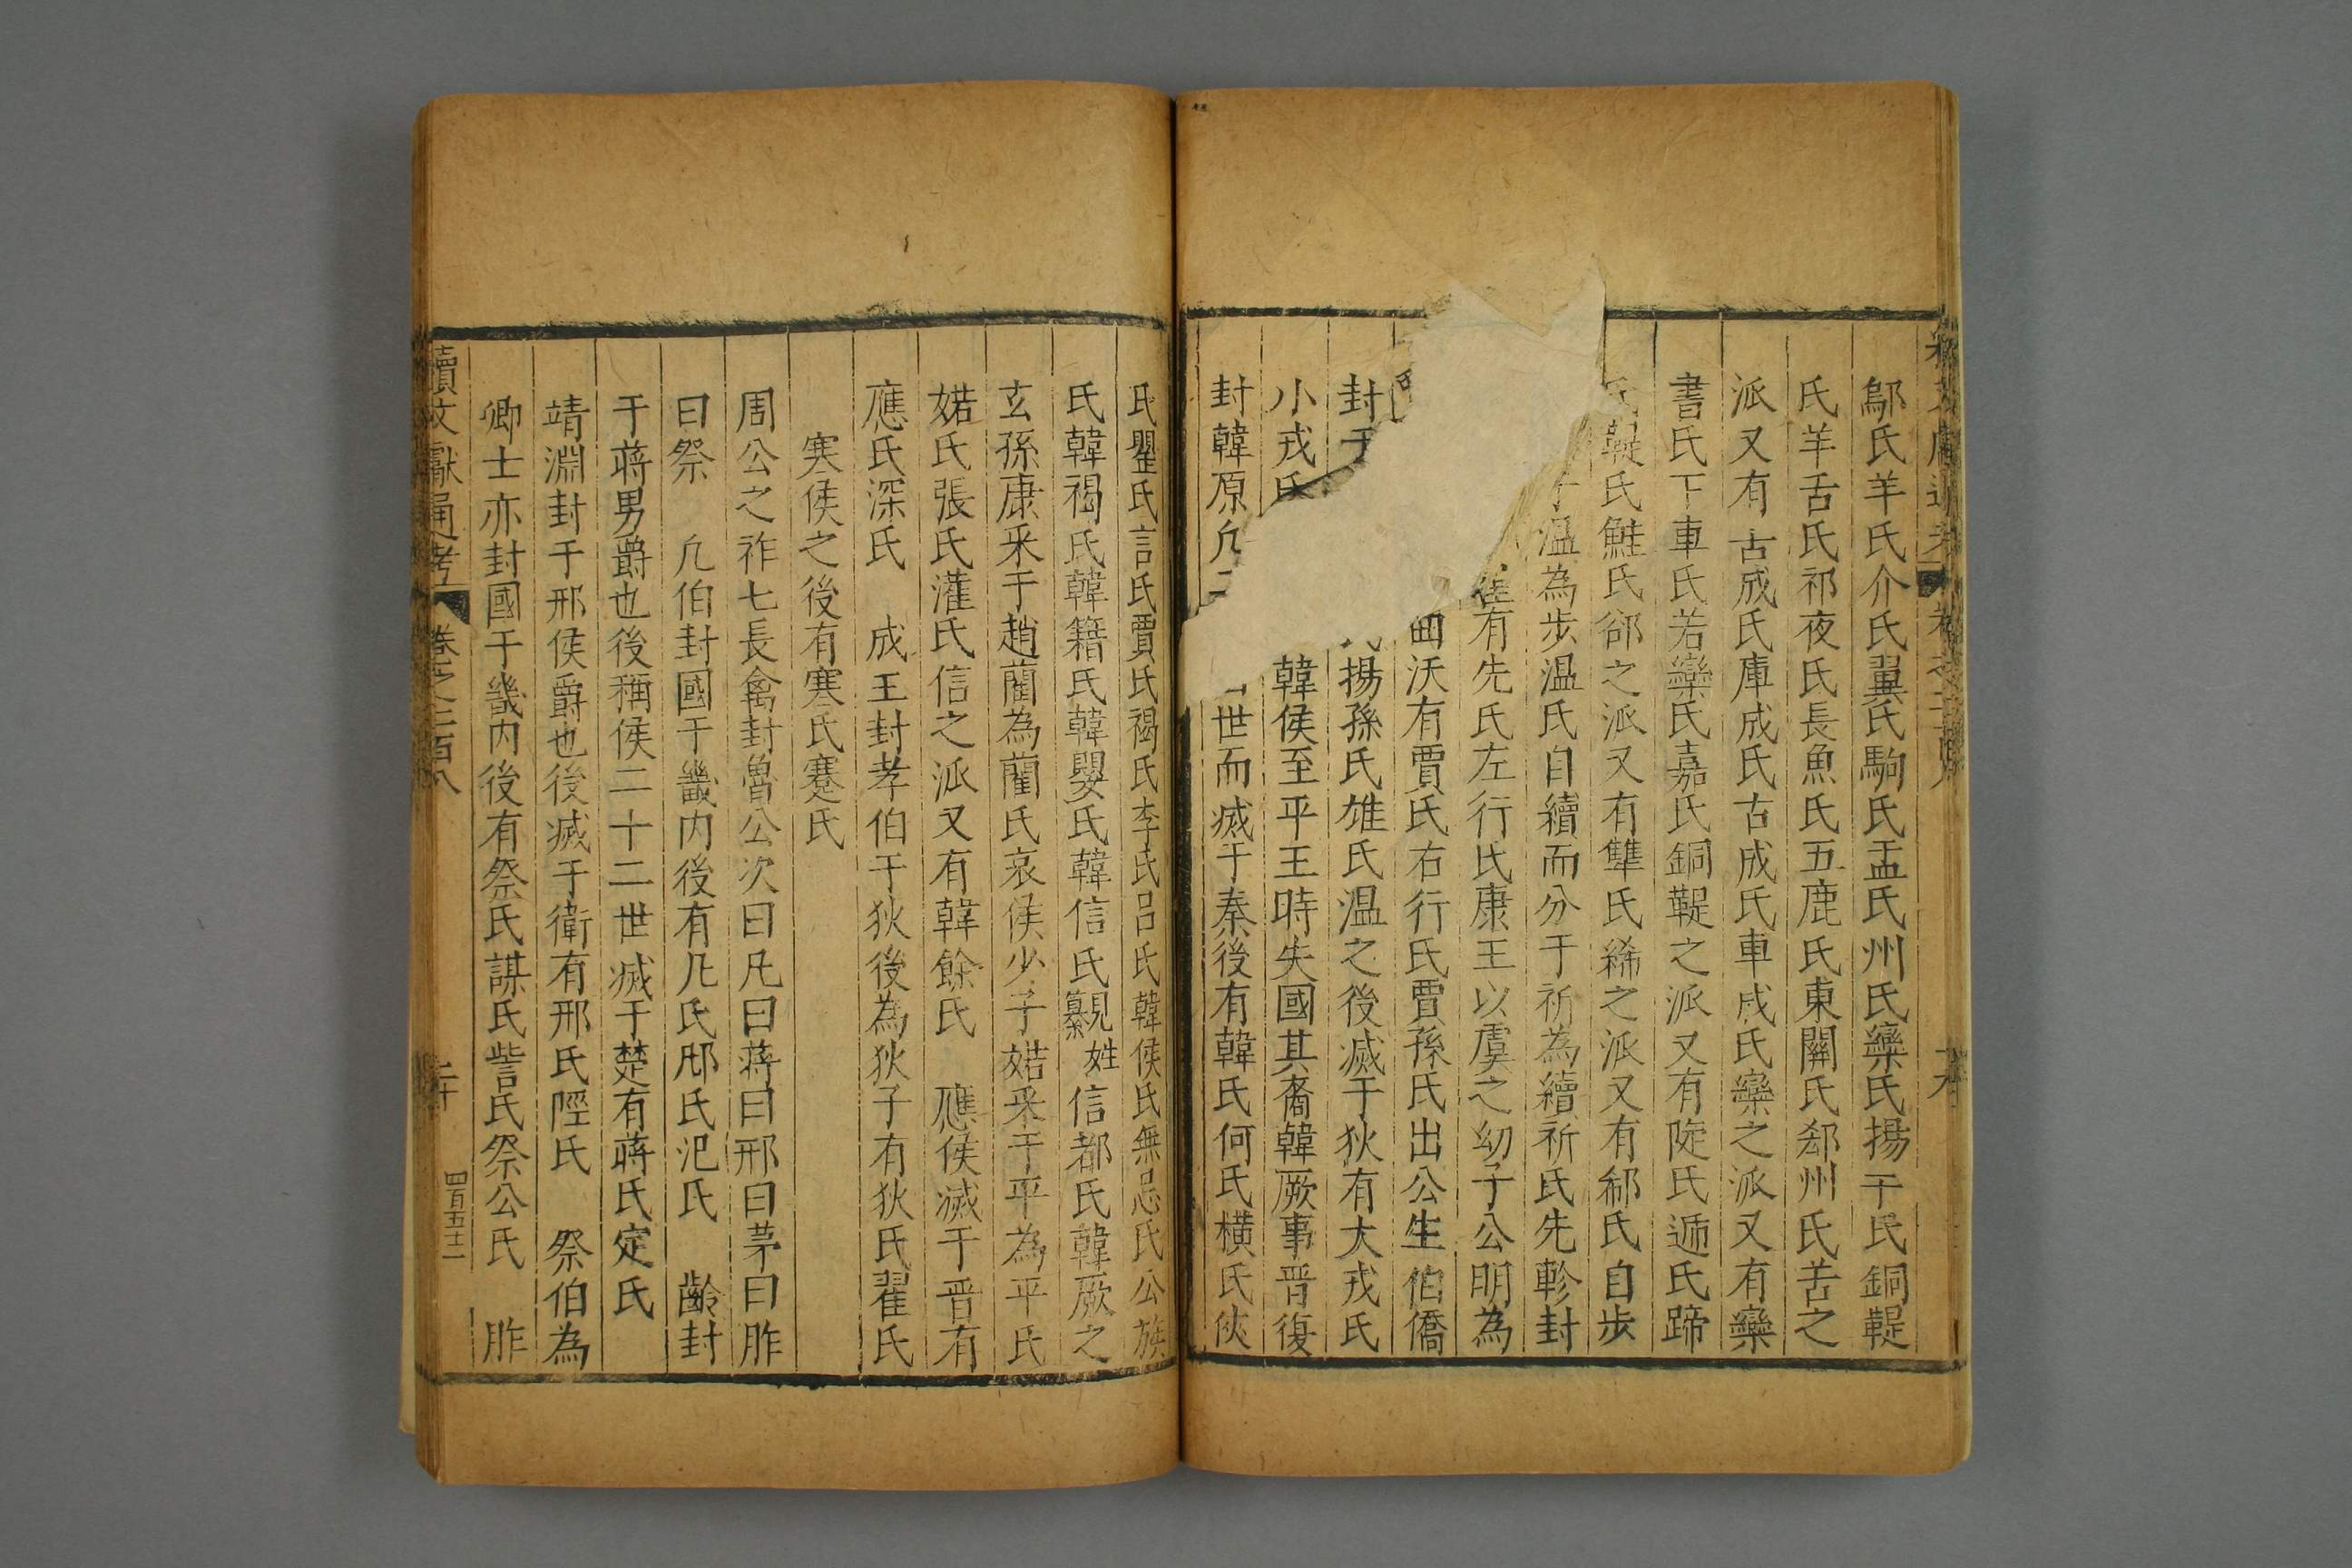 鄔氏羊氏介氏翼氏駒氏孟氏州氏欒氏揚干氏銅鞮
氏羊舌氏祁夜氏長魚氏五鹿氏東關氏郄州氏苦之
派又有古成氏庫成氏古成氏車成氏欒之派又有欒
書氏下車氏若欒氏嘉氏銅鞮之派又有陡氏逓氏蹄
鞮氏鮭氏郤之派又有雙氏絺之派又有郗氏自步
温為步温氏自續而分于祈為續祈氏先軫封
有先氏左行氏康王以虞之幼子公明為
沃有賈氏右行氏賈孫氏出公生伯僑
封于 揚孫氏雄氏温之後滅于狄有大戎氏
小戎氏 韓侯至平王時失國其裔韓厥事晋復
封韓原凢 世而滅于秦後有韓氏何氏横氏俠
氏瞾氏言氏賈氏褐氏李氏吕氏韓侯氏無忌氏公族
氏韓褐氏韓籍氏韓嬰氏韓信氏纂姓信都氏韓厥之
玄孫康采于趙藺為藺氏哀侯少子婼采于平為平氏
婼氏張氏灌氏信之派又有韓餘氏 應侯滅于晋有
應氏深氏 成王封孝伯于狄後為狄子有狄氏翟氏
寒侯之後有寒氏蹇氏
周公之祚七長禽封魯公次曰凡曰蒋曰邢曰茅曰胙
曰祭 凢伯封國于畿内後有凡氏邧氏氾氏 齡封
于蒋男爵也後稱侯二十二世滅于楚有蒋氏定氏
靖淵封于邢侯爵也後滅于衛有邢氏陘氏 祭伯為
卿士亦封國于畿内後有祭氏謀氏訾氏祭公氏 胙
續文獻通考 卷之二百八 二十 四百五十二